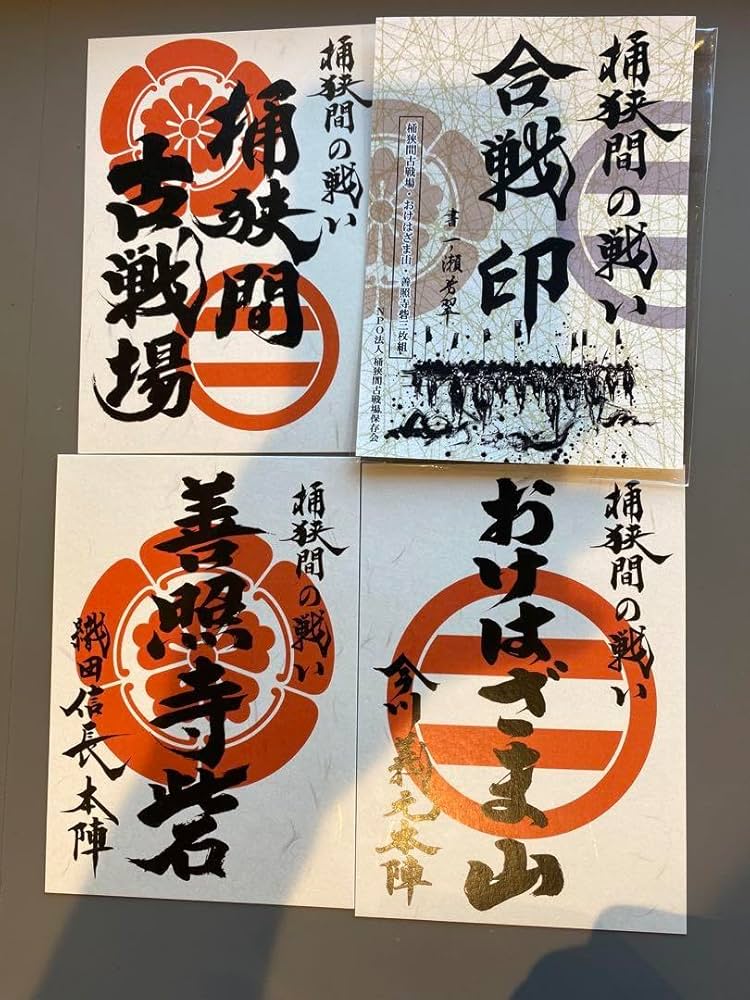 桶狭間の戦い
桶狭間
古戦場
桶狭間の戦い
合戦印
書 一ノ瀬芳翠
桶狭間古戦場・おけはざま山・善照寺砦三枚組
NPO法人 桶狭間古戦場保存会
桶狭間の戦い
善照寺砦
織田信長本陣
桶狭間の戦い
おけはざま山
今川義元本陣